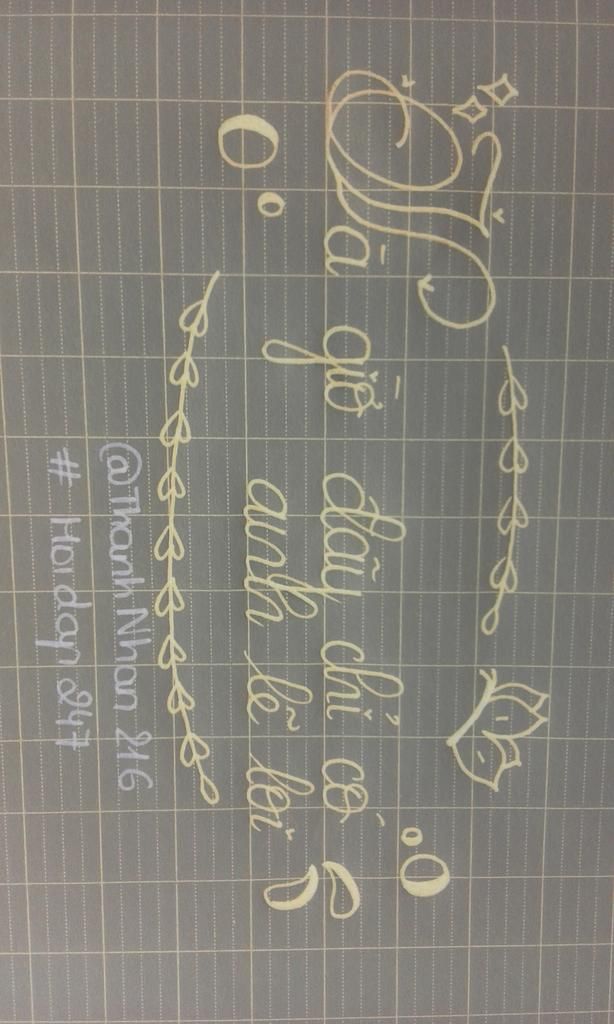 Và giờ đây chỉ có
anh lẽ loi
@Thanh Nhan 216
# Hoidap 247